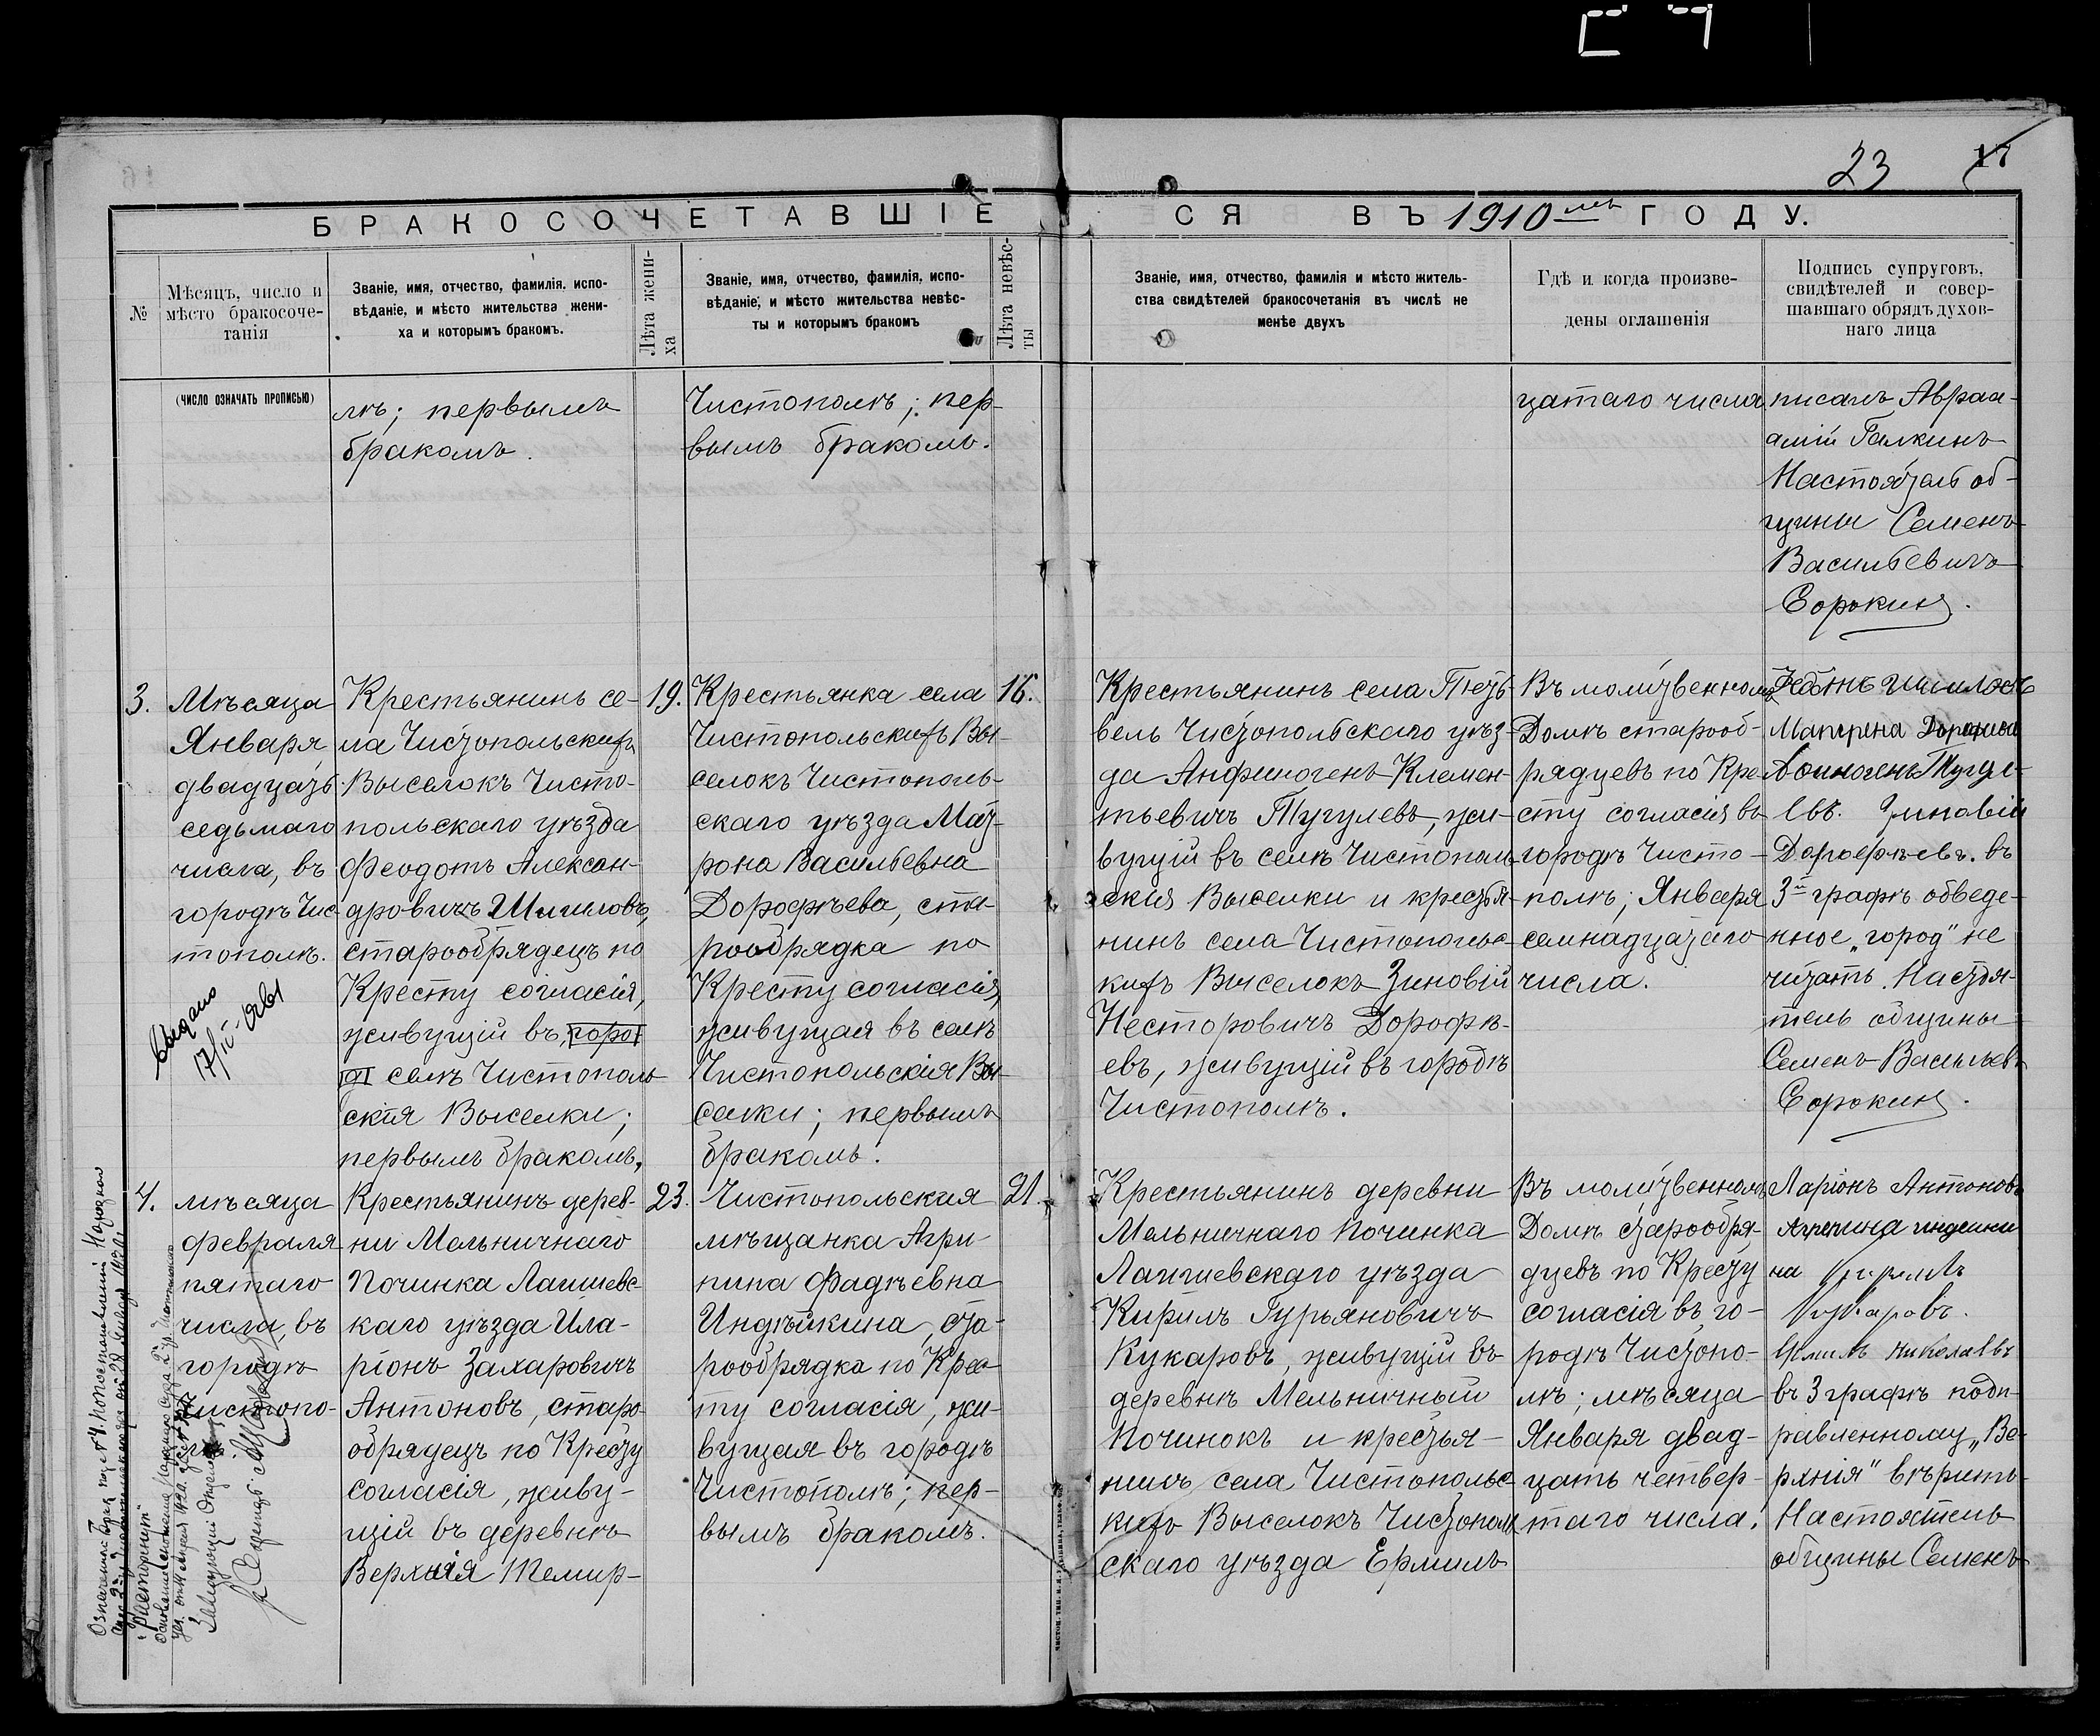 23 17
БРАКОСОЧЕТАВШІЕСЯ ВЪ 1910мъ ГОДУ.
№
Мѣсяцъ, число и
мѣсто бракосоче-
танія
(число означать прописью)
Званіе, имя, отчество, фамилія, испо-
вѣданіе, и мѣсто жительства жени-
ха и которымъ бракомъ.
Лѣта жени-
ха
Званіе, имя, отчество, фамилія, испо-
вѣданіе, и мѣсто жительства невѣс-
ты и которымъ бракомъ
Лѣта невѣс-
ты
Званіе, имя, отчество, фамилія и мѣсто житель-
ства свидѣтелей бракосочетанія въ числѣ не
менѣе двухъ
Гдѣ и когда произве-
дены оглашенія
Подпись супруговъ,
свидѣтелей и совер-
шавшаго обрядъ духов-
наго лица
лѣ; первымъ
бракомъ.
Чистополѣ; пер-
вымъ бракомъ.
цатаго числа
писалъ Авраа-
амій Галкинъ
Настоятель об-
щины Семенъ
Васильевичъ
Сорокинъ.
3.
Мѣсяца
Января
двадцать
седьмаго
числа, въ
городѣ Чис-
тополѣ.
Выдано
Крестьянинъ се-
ла Чистопольскихъ
Выселокъ Чисто-
польскаго уѣзда
Феодотъ Алексан-
дровичъ Шмиловъ,
старообрядецъ по
Кресту согласія,
живущій въ горо
дѣ селѣ Чистополь-
скія Выселки;
первымъ бракомъ.
19.
Крестьянка села
Чистопольскихъ Вы-
селокъ Чистополь-
скаго уѣзда Мат-
рона Васильевна
Дорофѣева, ста-
рообрядка по
Кресту согласія,
живущая въ селѣ
Чистопольскія Вы-
селки; первымъ
бракомъ.
16.
Крестьянинъ села
Чистопольскаго уѣз-
да Анфиногенъ Клемен-
тьевичъ Тугулевъ, жи-
вущій въ селѣ Чистополь-
скія Выселки и крестья-
нинъ села Чистопольс-
кихъ Выселокъ Зиновій
Несторовичъ Дорофѣ-
евъ, живущій въ городѣ
Чистополѣ.
Въ молитвенномъ
Домѣ старооб-
рядцевъ по Кре-
сту согласія въ
городѣ Чисто-
полѣ; Января
семнадцатаго
числа.
Матрена
Тугул-
евъ. Зиновій
Дорофѣевъ. въ
3й графѣ обведе-
нное „город“ не
читать. Настоя-
тель общины
Семенъ Васильевъ
Сорокинъ.
4.
мѣсяца
февраля
пятаго
числа, въ
городѣ
Чистопо-
лѣ
Крестьянинъ дерев-
ни Мельничнаго
Починка Лаишевс-
каго уѣзда Ила-
ріонъ Захаровичъ
Антоновъ, старо-
обрядецъ по Кресту
согласія, живу-
щій въ деревнѣ
Верхнія Темир-
23.
Чистопольская
мѣщанка Агри-
пина Фадѣевна
Индѣйкина, ста-
рообрядка по Крес-
ту согласія, жи-
вущая въ городѣ
Чистополѣ; пер-
вымъ бракомъ.
21.
Крестьянинъ деревни
Мельничнаго Починка
Лаишевскаго уѣзда
Кирилъ Гурьяновичъ
Кукаровъ, живущій въ
деревнѣ Мельничный
Починокъ и крестья-
нинъ села Чистопольс-
кихъ Выселокъ Чистополь-
скаго уѣзда Ермилъ
Въ молитвенномъ
Домѣ старообря-
дцевъ по Кресту
согласія въ го-
родѣ Чистопо-
лѣ; мѣсяца
Января двад-
цать четвер-
таго числа.
Ларіонъ Антоновъ
на Кирилъ
Кукаровъ.
въ 3 графѣ подп-
равленному „Ве-
рхнія“ вѣрить.
Настоятель
общины Семенъ